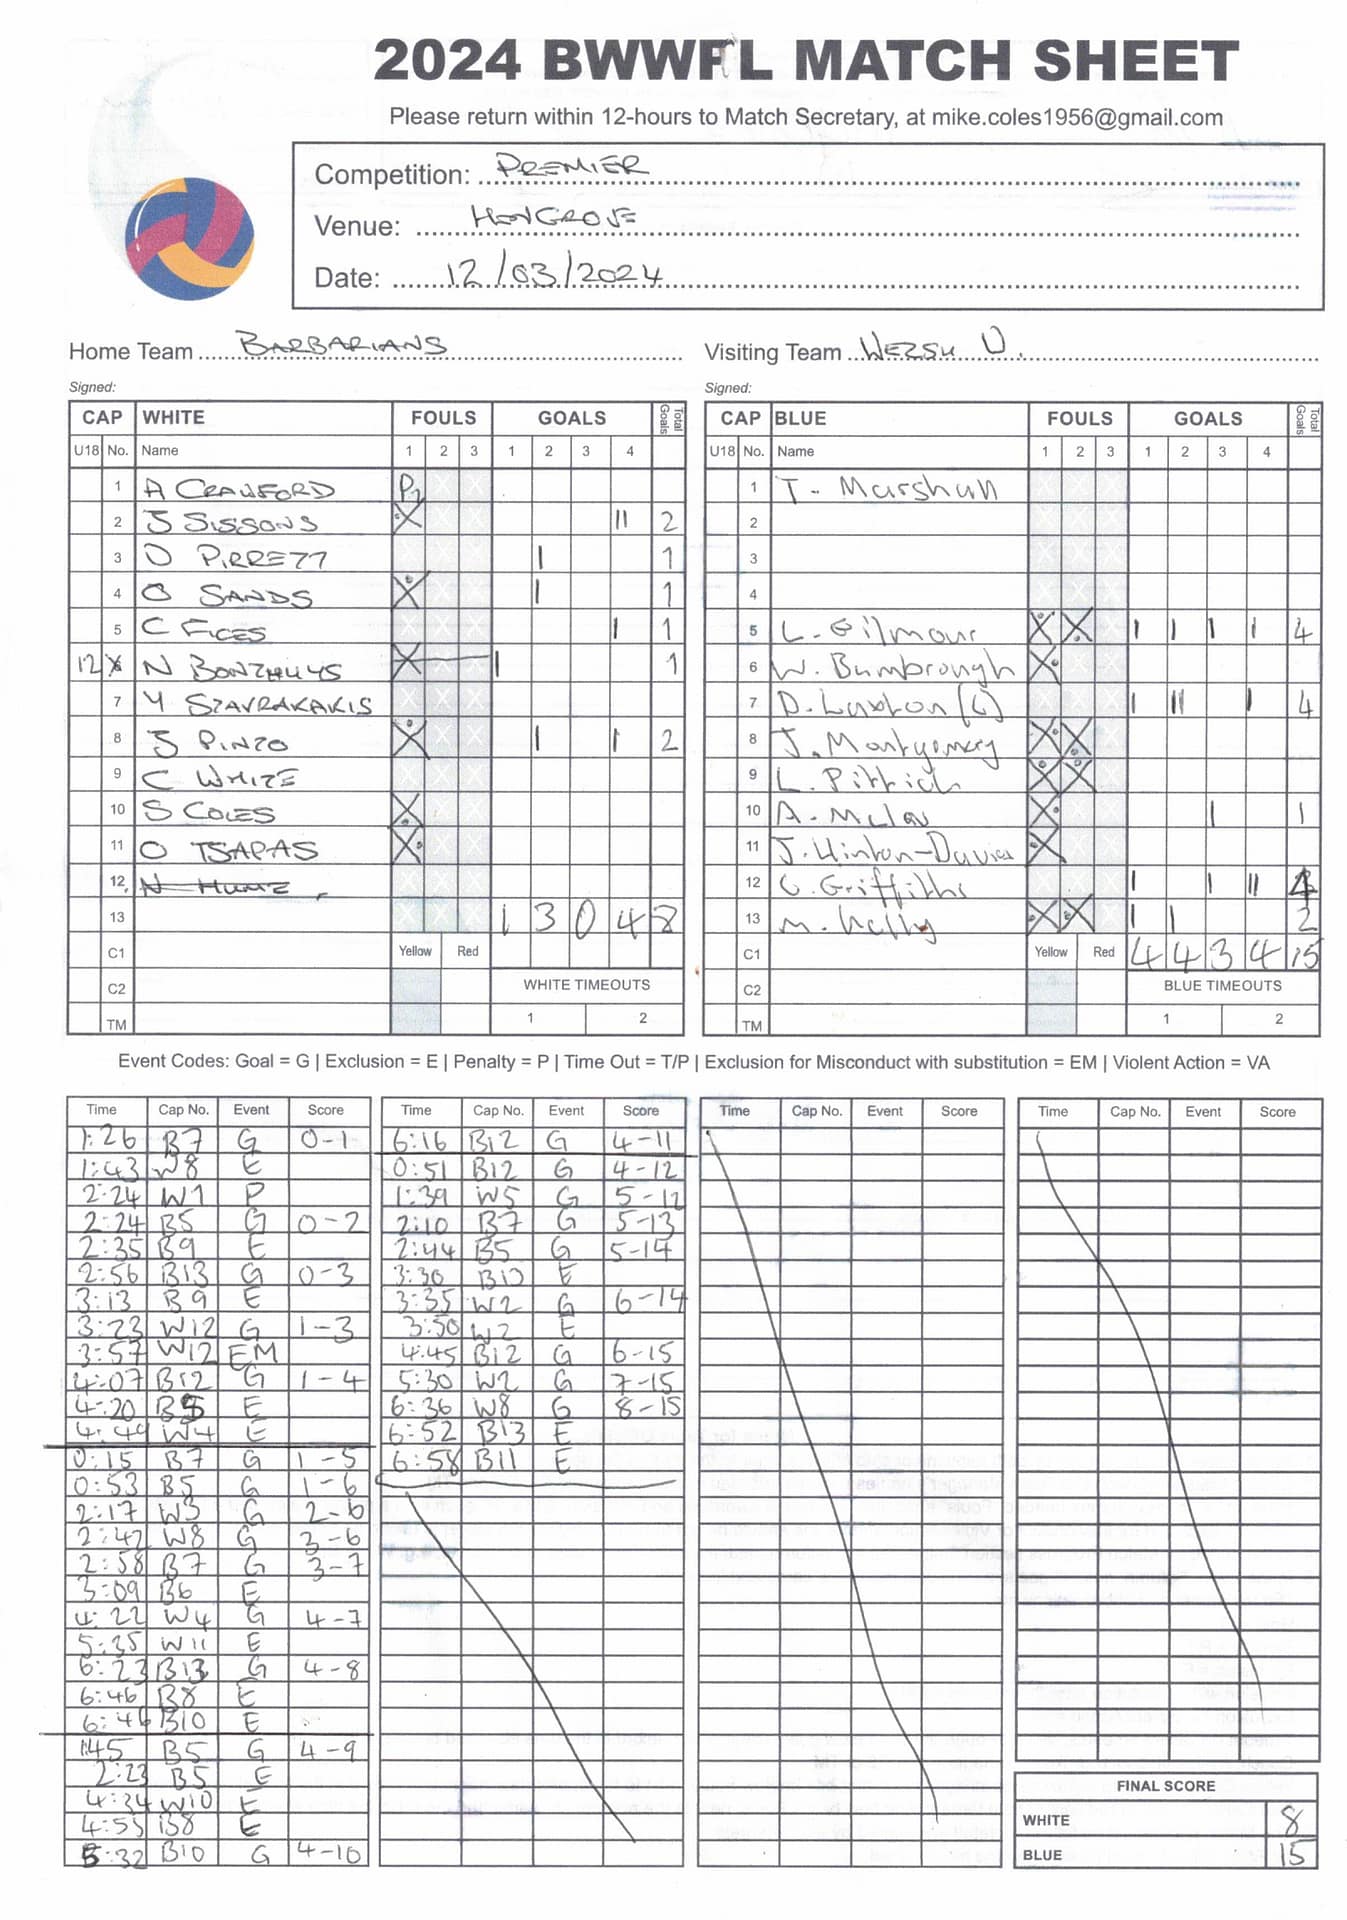 2024 BWWPL MATCH SHEET
Please return within 12-hours to Match Secretary, at mike.coles1956@gmail.com
Competition: PREMIER
Venue: HENGROVE
Date: 12/03/2024
Home Team BARBARIANS
Visiting Team WELSH U.
Signed:
Signed:
CAP WHITE FOULS GOALS Total Goals
U18 No. Name 1 2 3 1 2 3 4
1 A CRAWFORD P
2 J SISSONS X II 2
3 D PIRRETT I 1
4 O SANDS X I 1
5 C FICES I 1
12 N BONZHUYS X I 1
7 Y STAVRAKAKIS
8 J PINTO X I I 2
9 C WHITE
10 S COLES X
11 O TSAPAS X
12 N HUNT
13 1 3 0 4 8
C1 Yellow Red
C2 WHITE TIMEOUTS
TM 1 2
CAP BLUE FOULS GOALS Total Goals
U18 No. Name 1 2 3 1 2 3 4
1 T. Marshall
2
3
4
5 L. Gilmour X X I I I I 4
6 W. Bumbrough X
7 D. Laxton (C) I II I 4
8 J. Montgomery X X
9 L. Pittich X X
10 A. McLay X I 1
11 J. Hinton-Davies X
12 C. Griffiths I I II 4
13 M. Kelly X X I I 2
C1 Yellow Red 4 4 3 4 15
C2 BLUE TIMEOUTS
TM 1 2
Event Codes: Goal = G | Exclusion = E | Penalty = P | Time Out = T/P | Exclusion for Misconduct with substitution = EM | Violent Action = VA
Time Cap No. Event Score
1:26 B7 G 0-1
1:43 W8 E
2:24 W1 P
2:24 B5 G 0-2
2:35 B9 E
2:56 B13 G 0-3
3:13 B9 E
3:23 W12 G 1-3
3:57 W12 EM
4:07 B12 G 1-4
4:20 B5 E
4:49 W4 E
0:15 B7 G 1-5
0:53 B5 G 1-6
2:17 W3 G 2-6
2:42 W8 G 3-6
2:58 B7 G 3-7
3:09 B6 E
4:22 W4 G 4-7
5:35 W11 E
6:23 B13 G 4-8
6:46 B8 E
6:46 B10 E
1:45 B5 G 4-9
2:23 B5 E
4:34 W10 E
4:55 B8 E
5:32 B10 G 4-10
Time Cap No. Event Score
6:16 B12 G 4-11
0:51 B12 G 4-12
1:39 W5 G 5-12
2:10 B7 G 5-13
2:44 B5 G 5-14
3:30 B13 E
3:35 W2 G 6-14
3:50 W2 E
4:45 B12 G 6-15
5:30 W2 G 7-15
6:36 W8 G 8-15
6:52 B13 E
6:58 B11 E
Time Cap No. Event Score
Time Cap No. Event Score
FINAL SCORE
WHITE 8
BLUE 15